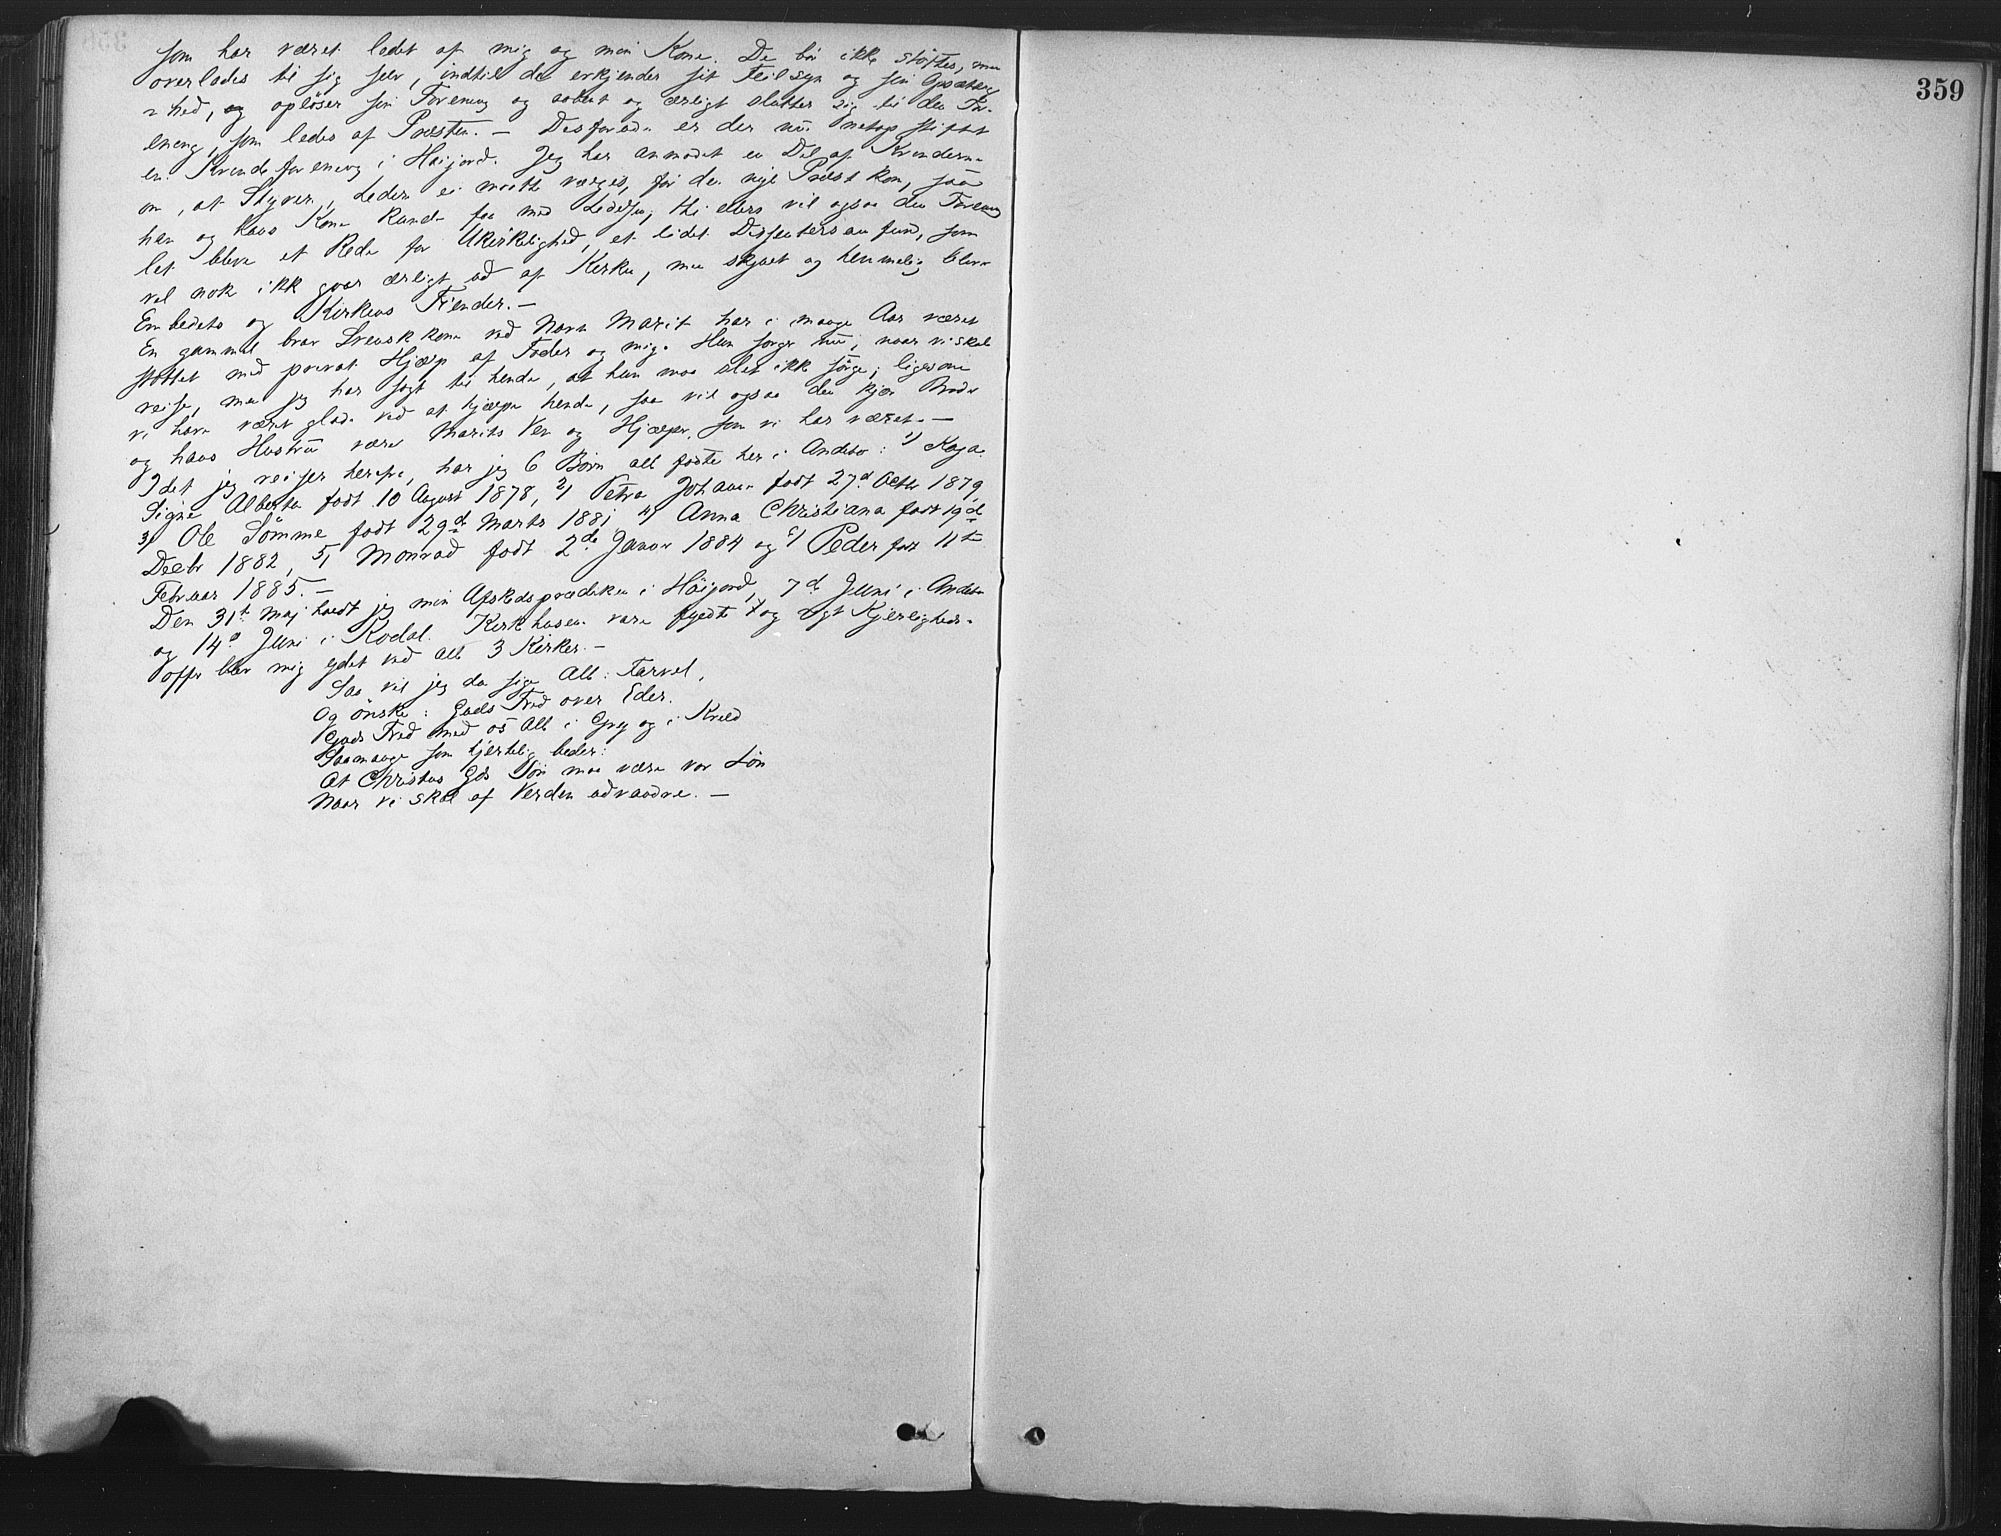 som har været ledet af mig og min Kone. De bør ikke støttes, men
overlades til sig selv, indtil de erkjender sit Feilsyn og sin Opsætsig-
hed, og opløser sin Forening og aabent og ærligt slutter sig til den For-
ening, som ledes af Præsten. — Desforuden er der nu netop stiftet
en Kvindeforening i Høijord. Jeg har anmodet en Del af Kvinderne
om, at Styrer, Leder ei maatte vælges, før den nye Præst kom, saa
han og hans Kone kunde faa med Ledelsen, thi ellers vil ogsaa den Forening
let blive et Rede for Ukirkelighed, et lidet Dissentersamfund, som
vel nok ikke gaar ærligt ud af Kirken, men skjult og hemmelig bliver
Embedets og Kirkens Fiender. —
En gammel brav Svenskkone ved Navn Marit har i mange Aar været
støttet med privat Hjælp af Foder og mig. Hun sørger nu, naar vi skal
reise, men jeg har sagt til hende, at hun maa slet ikke sørge; ligesom
vi have været glade ved at hjælpe hende, saa vil ogsaa den kjære Broder
og hans Hustru være Marits Ven og Hjælper, som vi har været. —
Idet jeg reiser herfra, har jeg 6 Børn alle fødte her i Andebo: 1) Kaja
Signe Alberta født 10 August 1878, 2) Petra Johanne født 27d Octbr 1879,
3) Ole Sømme født 29d Marts 1881 4) Anna Christiana født 19d
Decbr 1882, 5) Monrad født 2de Januar 1884 og 6) Peder født 11te
Februar 1885. —
Den 31te Maj holdt jeg min Afskedsprædiken i Høijord, 7de Juni i Andebo
og 14d Juni i Kodal. Kirkehusene vare fyldte og rigt Kjerligheds-
offer blev mig ydet ved alle 3 Kirker. —
Saa vil jeg da sige Alle: Farvel,
Og ønske: Guds Fred over Eder.
Guds Fred med os Alle i Gry og i Kveld
Saamange som hjertelig beder:
At Christus Gds Søn maa være vor Løn
Naar vi skal af Verden udvandre. —
359